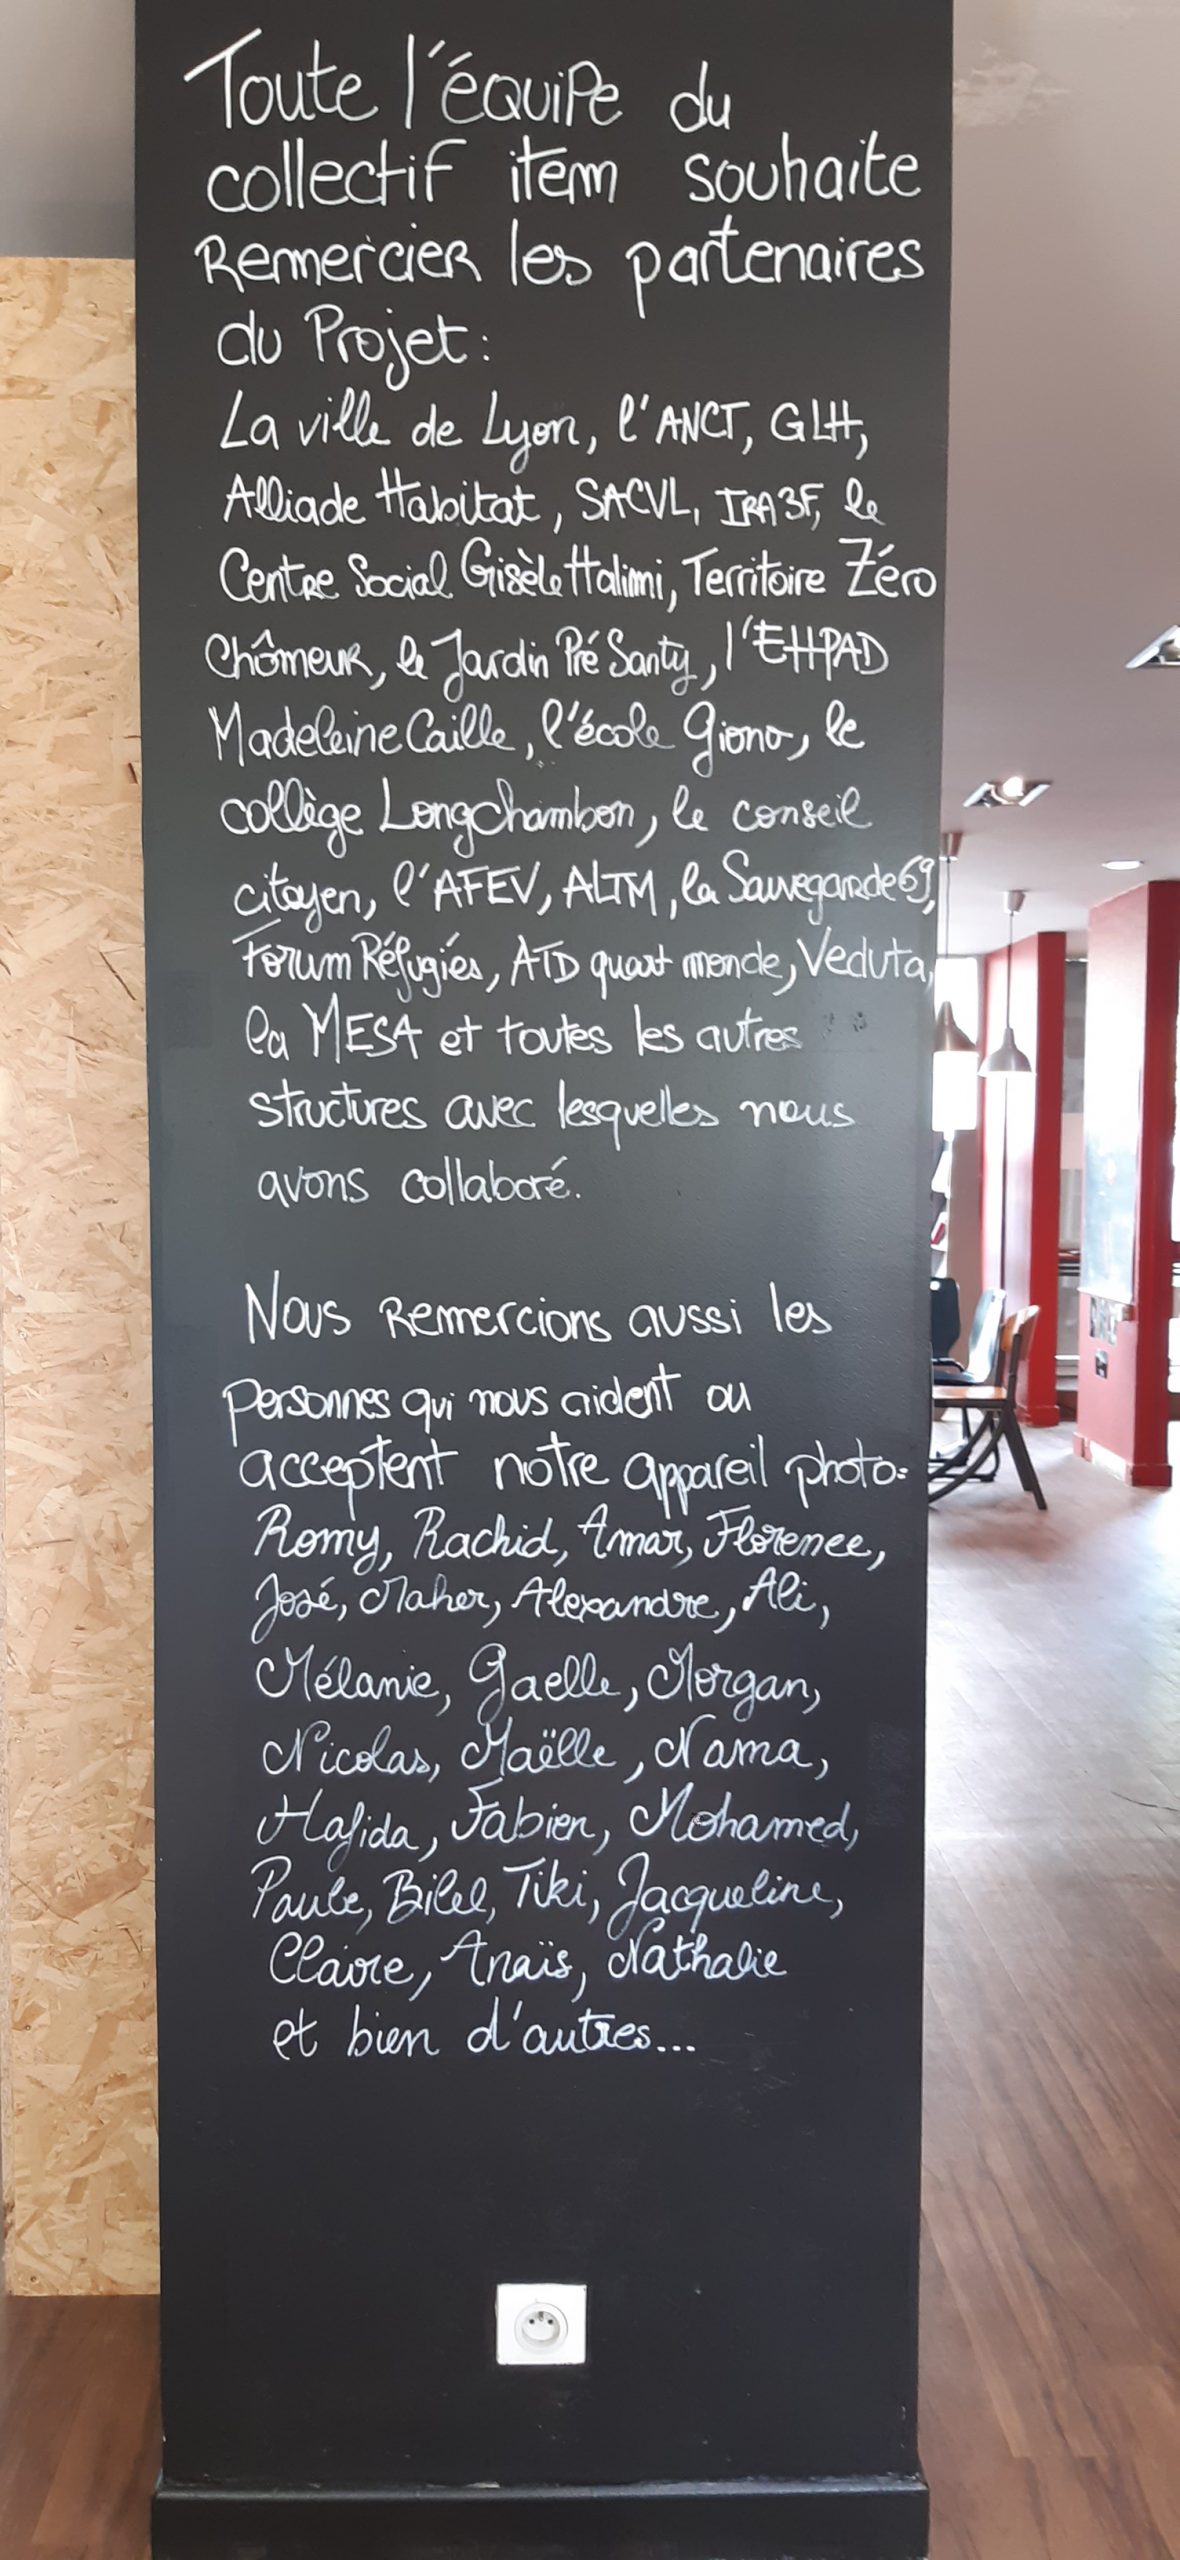 Toute l'équipe du
collectif item souhaite
Remercier les partenaires
du Projet :
La ville de Lyon, l'ANCT, GLH,
Alliade Habitat, SACVL, IRA3F, le
Centre Social Gisèle Halimi, Territoire Zéro
Chômeur, le Jardin Pré Santy, l'EHPAD
Madeleine Caille, l'école Giono, le
collège Longchambon, le conseil
citoyen, l'AFEV, ALTM, la Sauvegarde69,
Forum Réfugiés, ATD quart monde, Veduta,
la MESA et toutes les autres
structures avec lesquelles nous
avons collaboré.
Nous Remercions aussi les
personnes qui nous aident ou
acceptent notre appareil photo:
Romy, Rachid, Amar, Florence,
José, Maher, Alexandre, Ali,
Mélanie, Gaelle, Morgan,
Nicolas, Maëlle, Nama,
Hafida, Fabien, Mohamed,
Paule, Bilel, Tiki, Jacqueline,
Claire, Anaïs, Nathalie
et bien d'autres...